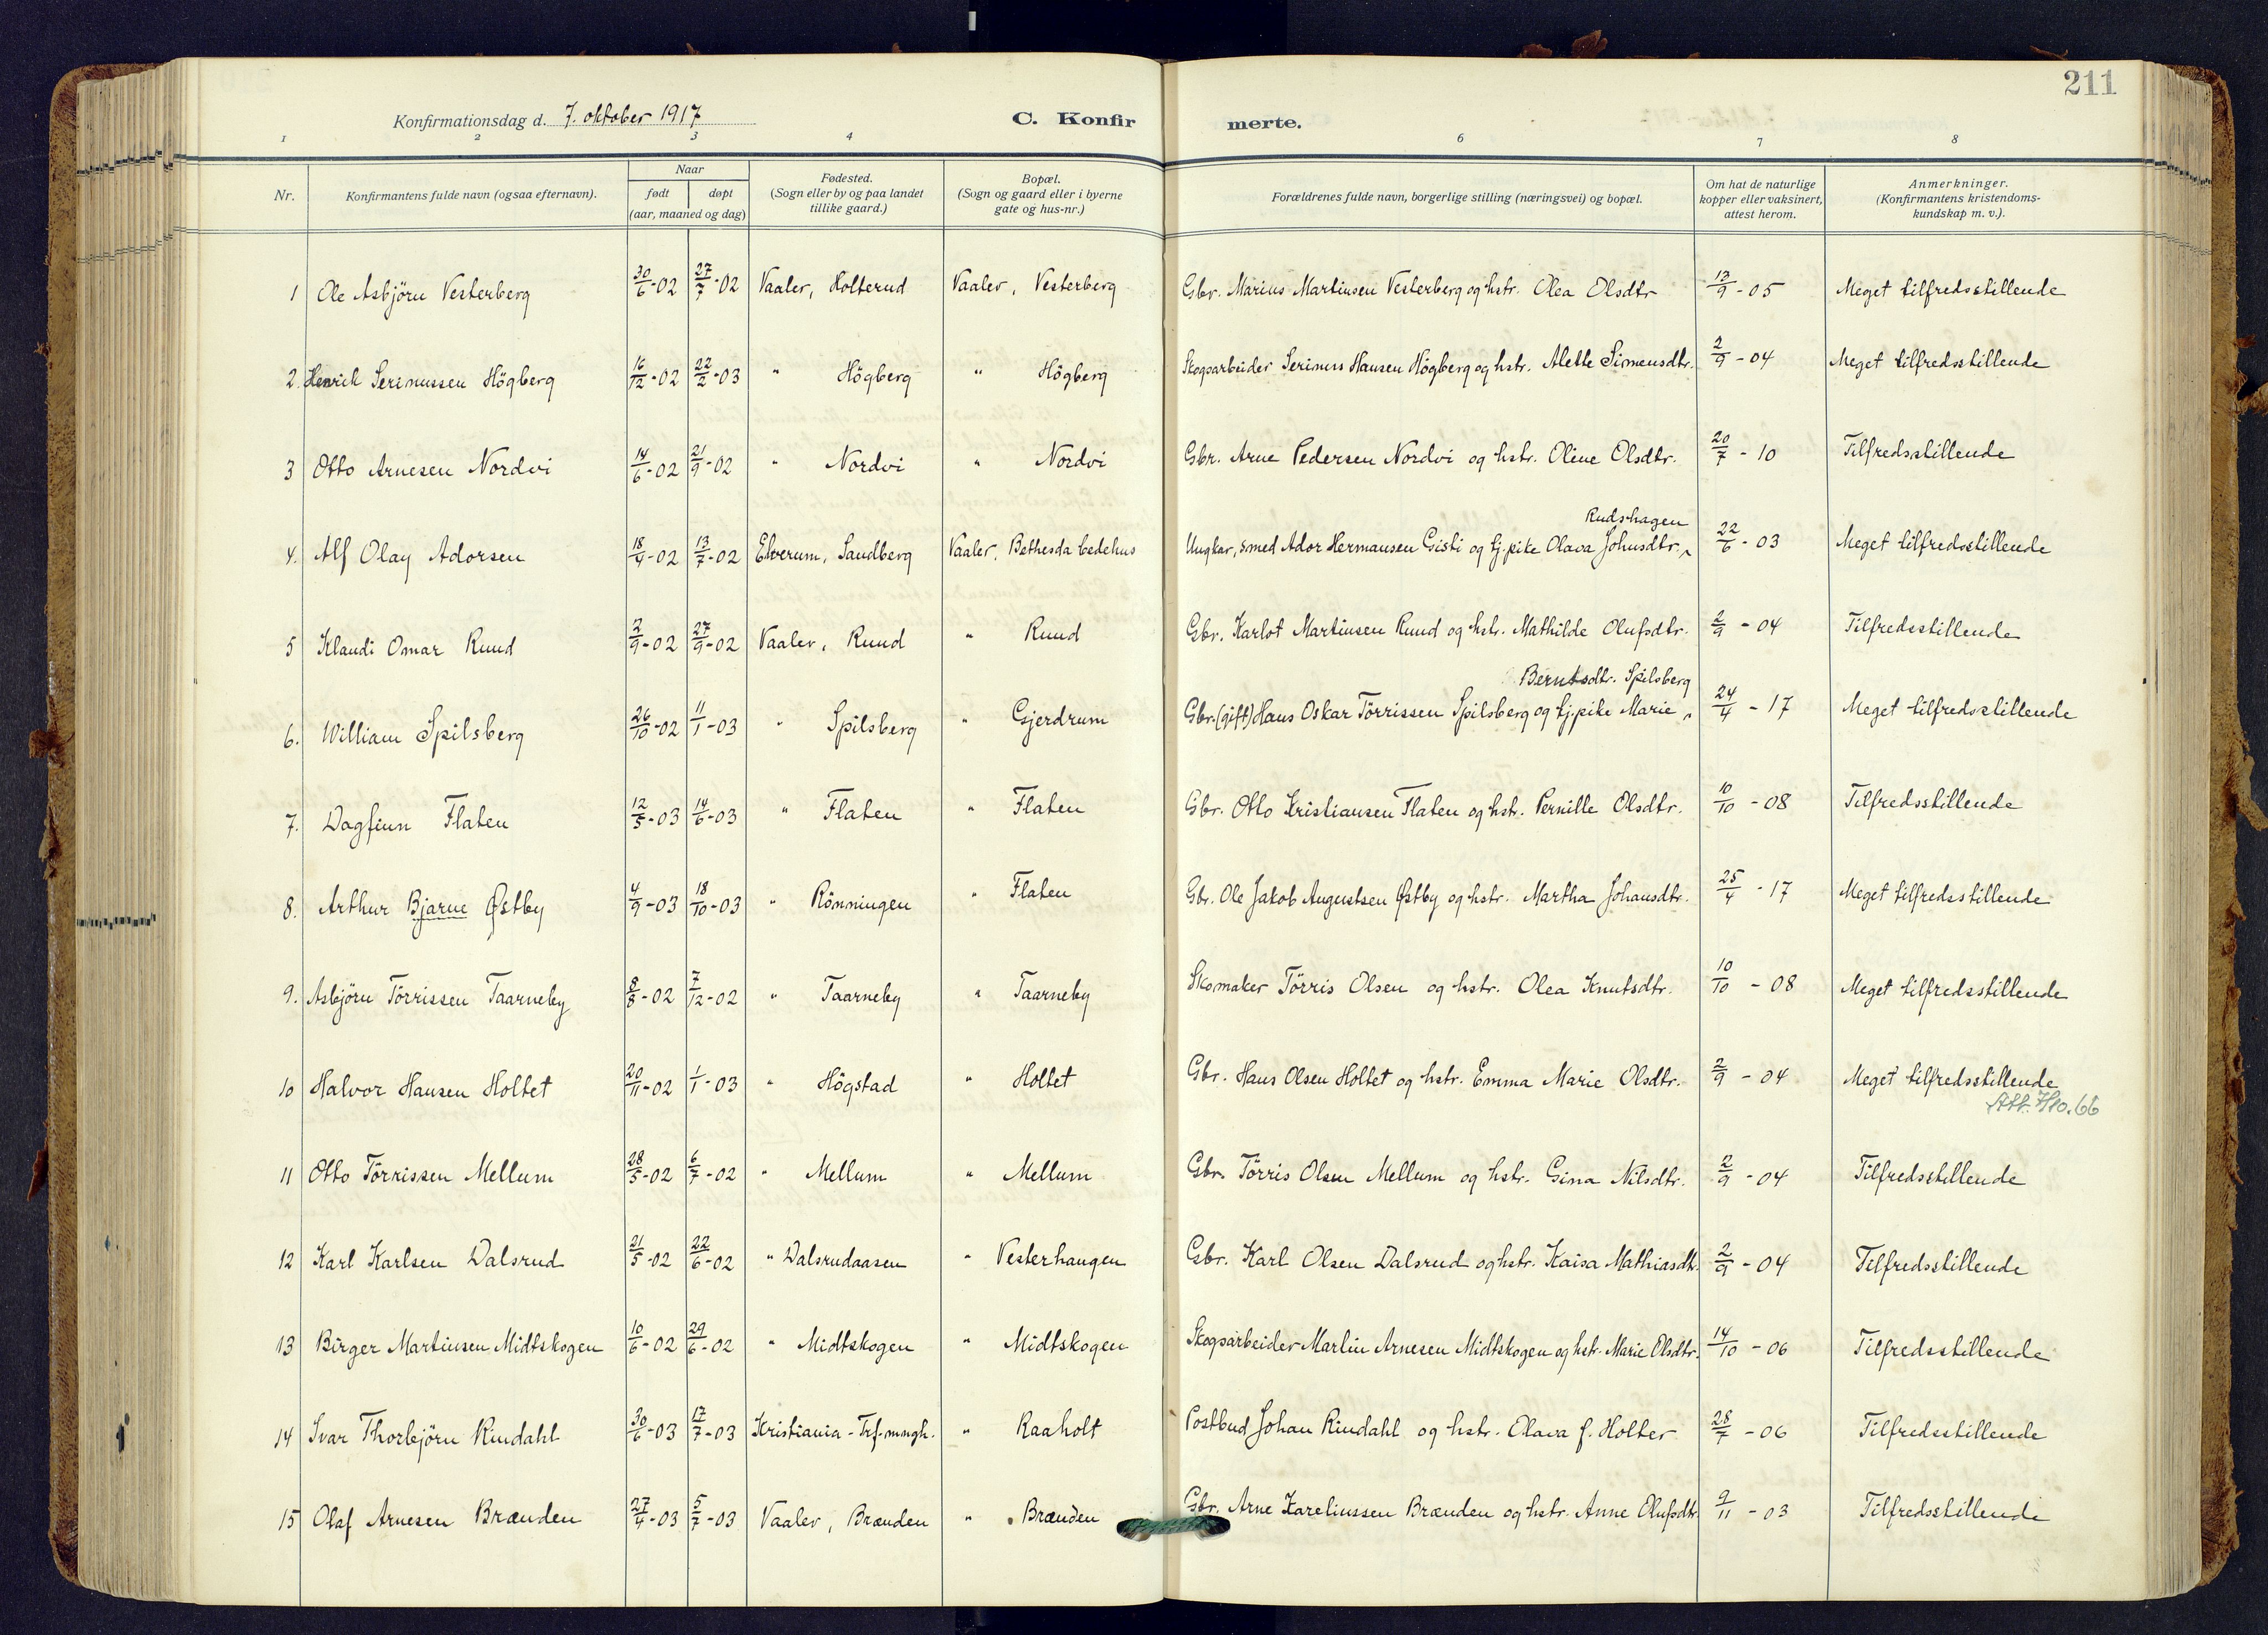 211
Konfirmationsdag d. 7. oktober 1917
C. Konfir merte.
1 2 3 4 6 7 8
Nr.
Konfirmantens fulde navn (ogsaa efternavn).
Naar
født døpt
(aar, maaned og dag)
Fødested.
(Sogn eller by og paa landet
tillike gaard.)
Bopæl.
(Sogn og gaard eller i byerne
gate og hus-nr.)
Forældrenes fulde navn, borgerlige stilling (næringsvei) og bopæl.
Om hat de naturlige
kopper eller vaksinert,
attest herom.
Anmerkninger.
(Konfirmantens kristendoms-
kundskap m. v.).
1 Ole Asbjörn Vesterberg 30/6-02 27/7-02 Vaaler, Holterud Vaaler, Vesterberg Gbr. Marius Martinsen Vesterberg og hstr. Olea Olsdtr 13/9-05 Meget tilfredsstillende
2. Henrik Serinussen Högberg 16/12-02 22/2-03 " Högberg " Högberg Skogsarbeider Serinus Hansen Högberg og hstr. Alette Simensdtr. 2/9-04 Meget tilfredsstillende
3 Otto Arnesen Nordvi 14/6-02 21/9-02 " Nordvi " Nordvi Gbr. Arne Pedersen Nordvi og hstr. Oline Olsdtr. 20/7-10 Tilfredsstillende
Rudshagen
4. Alf Olay Adorsen 18/4-02 13/7-02 Elverum, Sandberg Vaaler, Bethesda bedehus Ungkar, smed Ador Hermansen Gisti og tj.pike Olava Johnsdtr. 22/6-03 Meget tilfredsstillende
5 Klaudi Omar Ruud 2/9-02 27/9-02 Vaaler, Ruud " Ruud Gbr. Karlot Martinsen Ruud og hstr. Mathilde Olufsdtr. 2/9-04 Tilfredsstillende
Berntsdtr. Spilsberg
6. William Spilsberg 26/10-02 11/1-03 " Spilsberg " Gjerdrum Gbr. (gift) Hans Oskar Törrissen Spilsberg og tj.pike Marie 24/4-17 Meget tilfredsstillende
7. Dagfinn Flaten 12/5-03 14/6-03 " Flaten " Flaten Gbr. Otto Kristiansen Flaten og hstr. Pernille Olsdtr. 10/10-08 Tilfredsstillende
8. Arthur Bjarne Østby 4/9-03 18/10-03 " Rönningen " Flaten Gbr. Ole Jakob Augustsen Østby og hstr. Martha Johansdtr. 25/4-17 Meget tilfredsstillende
9. Asbjörn Törrissen Taarneby 8/8-02 7/12-02 " Taarneby " Taarneby Skomaker Törris Olsen og hstr. Olea Knutsdtr. 10/10-08 Meget tilfredsstillende
10 Halvor Hansen Holtet 20/11-02 1/1-03 " Högstad " Holtet Gbr. Hans Olsen Holtet og hstr. Emma Marie Olsdtr. 2/9-04 Meget tilfredsstillende
11 Otto Törrissen Mellum 28/5-02 6/7-02 " Mellum " Mellum Gbr. Törris Olsen Mellum og hstr. Gina Nilsdtr. 2/9-04 Tilfredsstillende
12 Karl Karlsen Dalsrud 21/5-02 22/6-02 " Dalsrudaasen " Vesterhaugen Gbr. Karl Olsen Dalsrud og hstr. Kaisa Mathiasdtr. 2/9-04 Tilfredsstillende
13 Birger Martinsen Midtskogen 10/6-02 29/6-02 " Midtskogen " Midtskogen Skogsarbeider Martin Arnesen Midtskogen og hstr. Marie Olsdtr. 14/10-06 Tilfredsstillende
14 Ivar Thorbjörn Rindahl 30/6-03 17/7-03 Kristiania - Trf.mngh. " Raaholt Postbud Johan Rindahl og hstr. Olava f. Holter 28/7-06 Tilfredsstillende
15 Olaf Arnesen Brænden 27/4-03 5/7-03 Vaaler, Brænden " Brænden Gbr. Arne Kareliussen Brænden og hstr. Anne Olufsdtr. 9/11-03 Tilfredsstillende